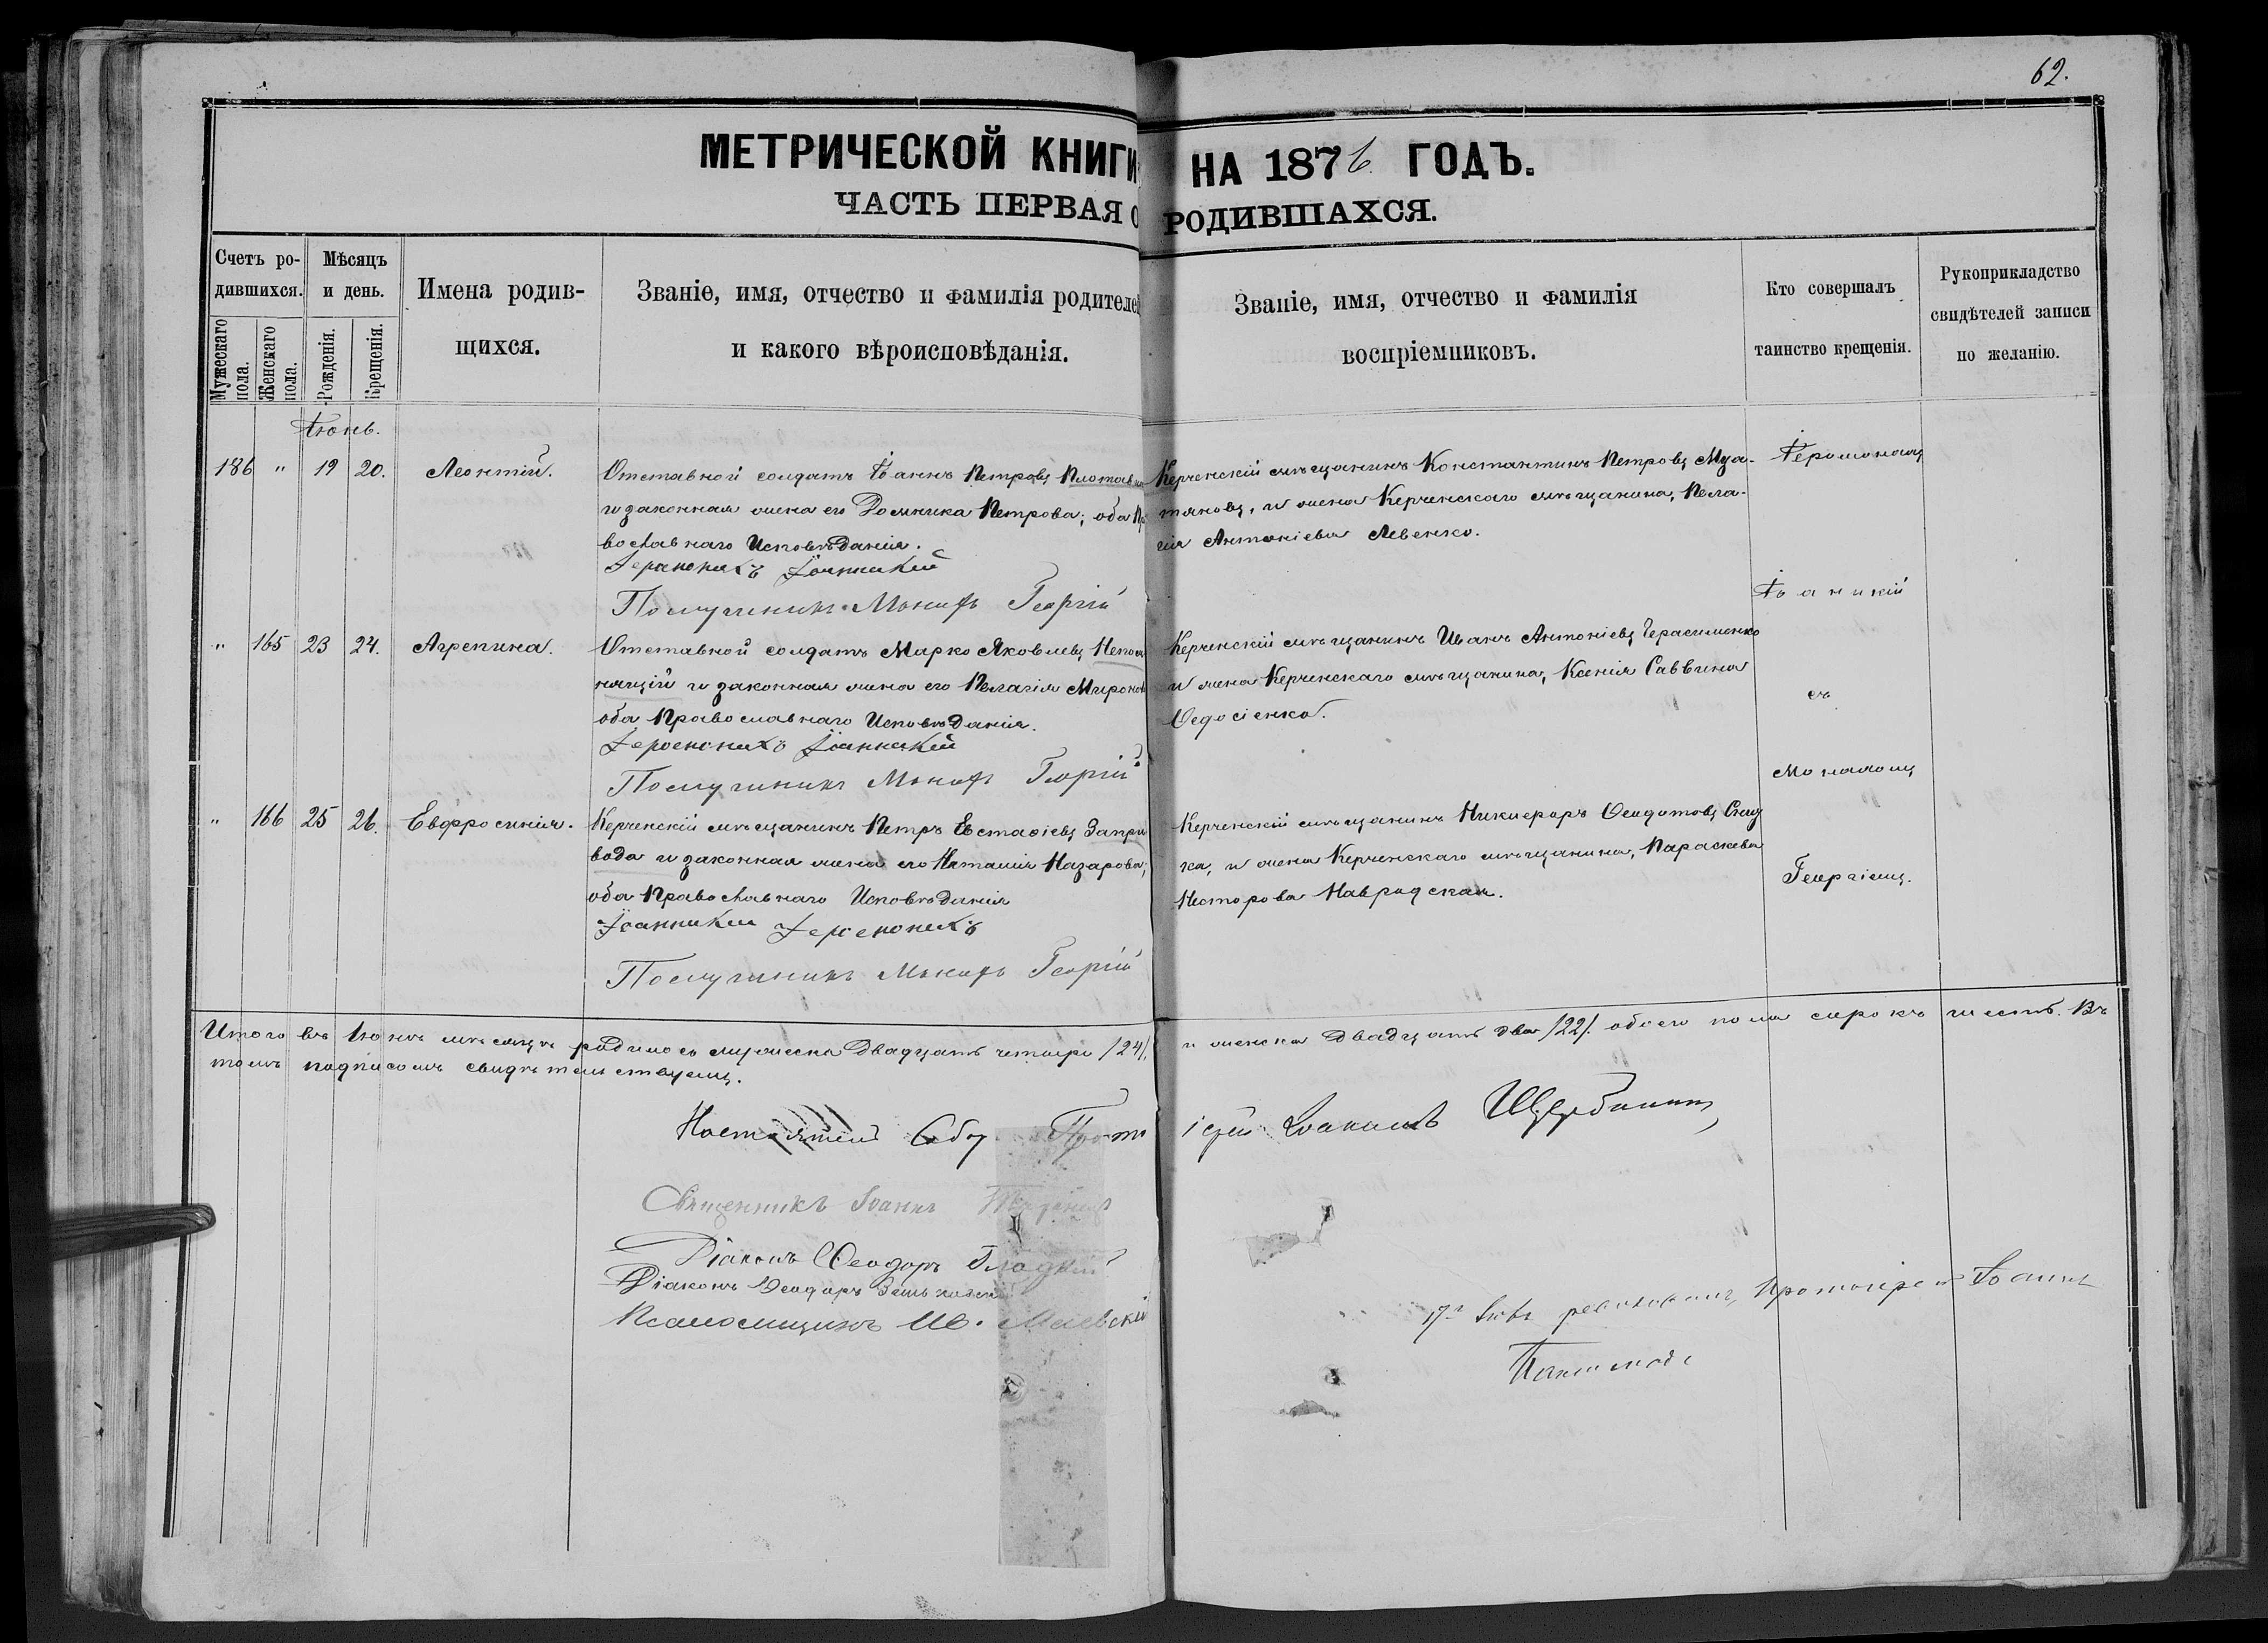 62.
МЕТРИЧЕСКОЙ КНИГИ НА 1876 ГОДЪ.
ЧАСТЬ ПЕРВАЯ О РОДИВШАХСЯ.
Счетъ ро-
дившихся.
Мужескаго пола.
Женскаго пола.
Мѣсяцъ
и день.
Рожденія.
Крещенія.
Имена родив-
щихся.
Званіе, имя, отчество и фамилія родителей
и какого вѣроисповѣданія.
Званіе, имя, отчество и фамилія
воспріемниковъ.
Кто совершалъ
таинство крещенія.
Рукоприкладство
свидѣтелей записи
по желанію.
Іюнь.
186 " 19 20. Леонтій.
Отставной солдатъ Іоаннъ Петровъ
и законная жена его Домника Петрова; оба Пра
вославнаго Исповѣданія.
Іеромонахъ Іоанникій
Послушникъ Георгій
Керченскій мѣщанинъ Константинъ Петровъ Муа-
тяновъ, и жена Керченскаго мѣщанина, Пела-
гія Антоніева Левенко.
Іеромонахъ
Іоаникій
" 165 23 24. Агрепина.
Отставной солдатъ Марко Яковлевъ Непом
нящій и законная жена его Пелагія Миронов
оба Православнаго Исповѣданія.
Іеромонахъ Іоанникій
Послушникъ Георгій
Керченскій мѣщанинъ Иванъ Антоніевъ Герасименко
и жена Керченскаго мѣщанина, Ксенія Саввина
Ѳедосіенко.
съ
Монахомъ
" 166 25 26. Евфросинія.
Керченскій мѣщанинъ Петръ Евстафіевъ Запри
вода и законная жена его Наталія Назарова;
оба Православнаго Исповѣданія
Іоанникій Іеромонахъ
Послушникъ Георгій
Керченскій мѣщанинъ Никифоръ Ѳеодотовъ
ка, и жена Керченскаго мѣщанина, Параскева
Несторова Навродская.
Георгіемъ.
Итого въ Іюнѣ мѣсяцѣ родилось мужеска двадцать четыре /24/, и женска двадцать два /22/. обоего пола сорокъ шесть. Въ
томъ подписомъ свидѣтельствуемъ.
Настоятель Собора Протоіерей Іоакимъ Щербинин
Священникъ Іоаннъ
Діаконъ Ѳеодоръ Гладкій
Діаконъ Ѳеодоръ
Псаломщикъ Ив. Маевскій
Протоіерей Іоаннъ